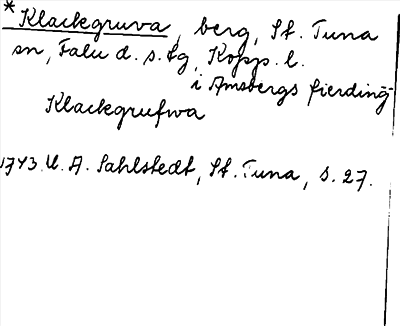 * Klackgruva, berg, St. Tuna
sn, Falu d. s. tg, Kopp. l.
i Amsbergs fierding
Klackgrufwa
1743 U. A. Sahlstedt, St. Tuna, s. 27.